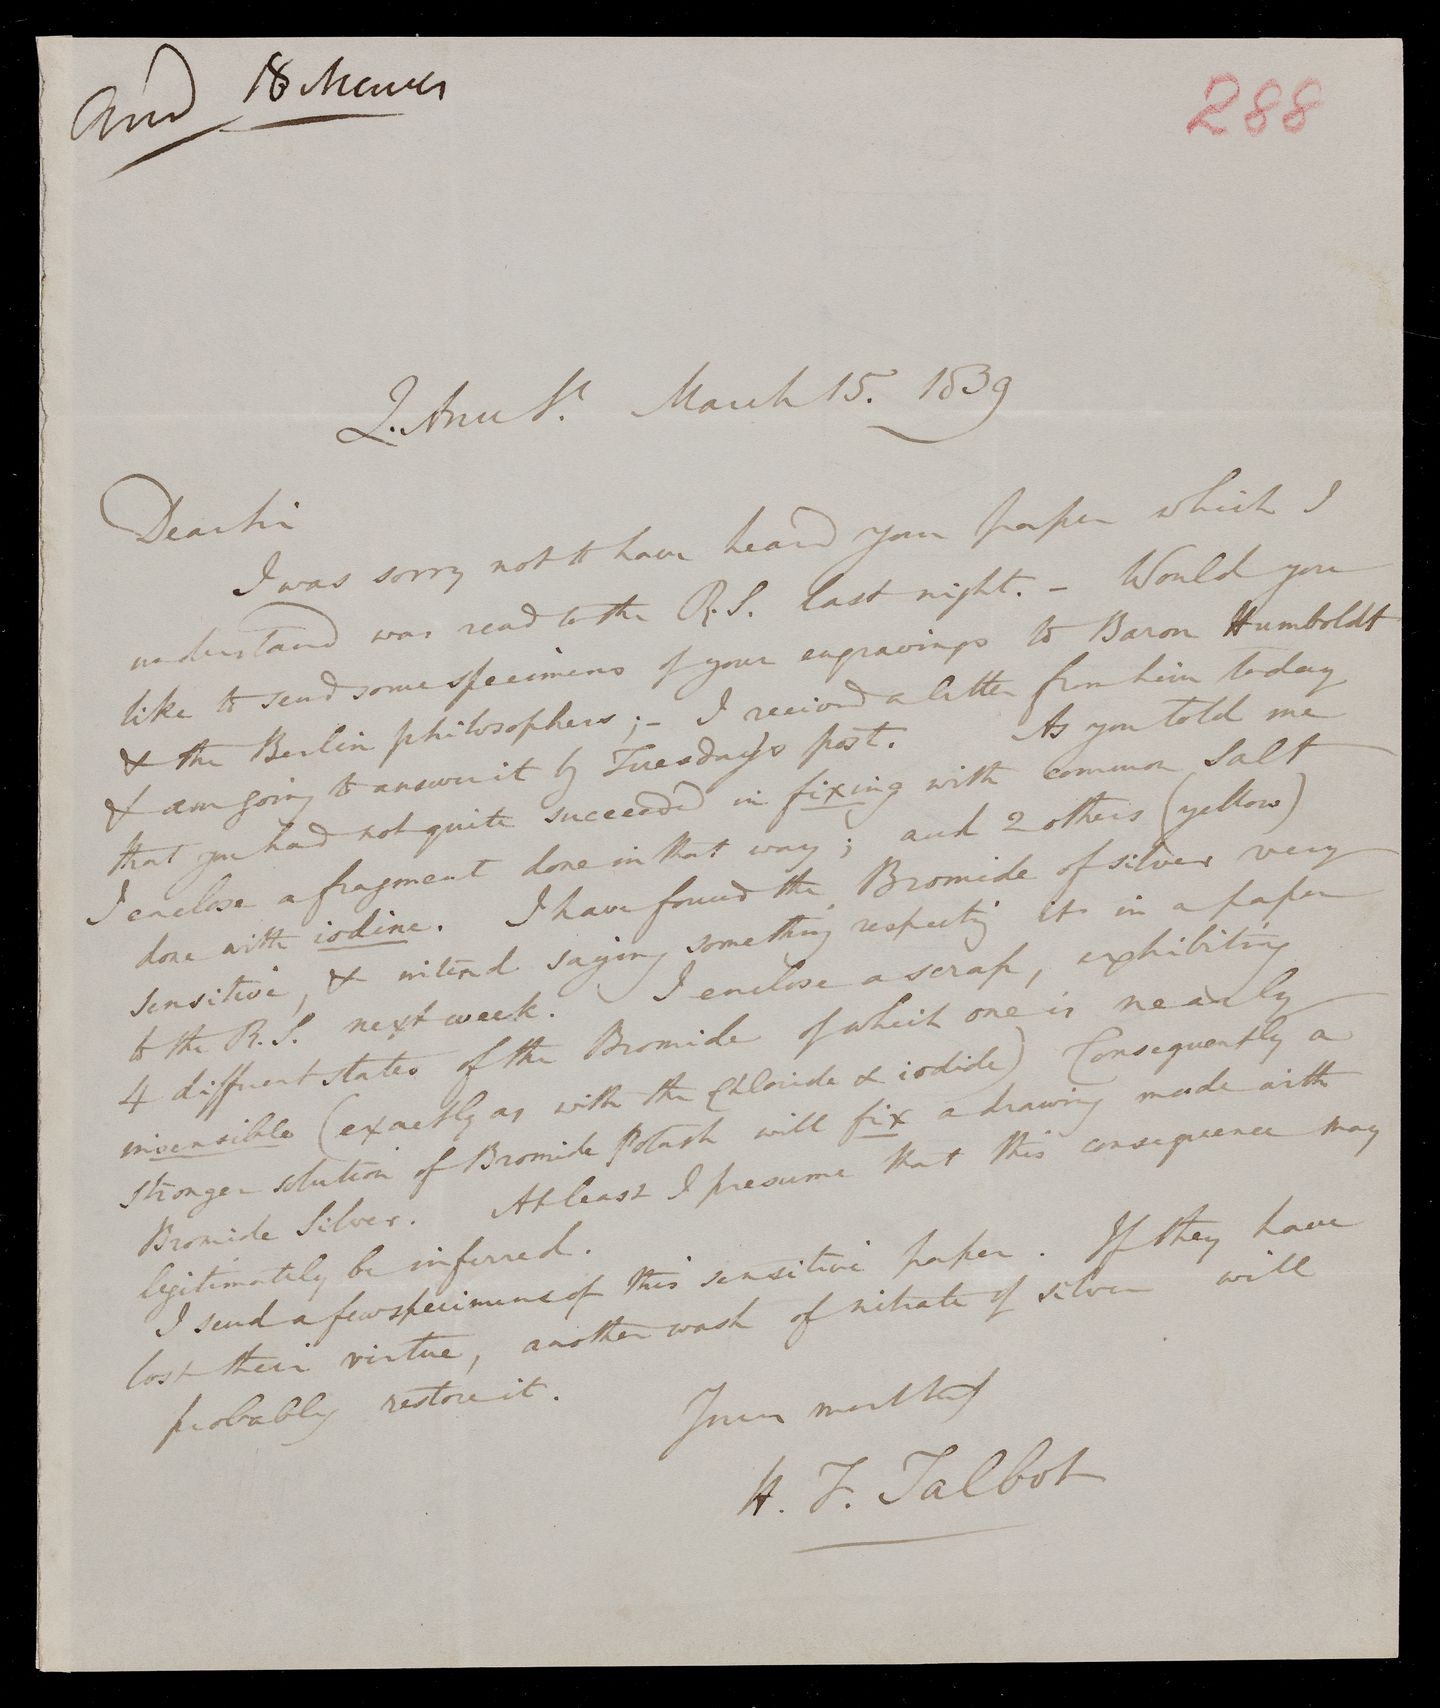 And 18 March
288
Q. Ann St. March 15. 1839
Dear Sir
I was sorry not to have heard your paper which I
understand was read to the R.S. last night. – Would you
like to send some specimens of your engravings to Baron Humboldt
& the Berlin philosophers; – I received a letter from him today
& am going to answer it by Tuesday's post. As you told me
that you had not quite succeeded in fixing with common Salt
I enclose a fragment done in that way; and 2 others (yellow)
done with iodine. I have found the Bromide of silver very
sensitive, & intend saying something respecting it in a paper
to the R.S. next week. I enclose a scrap, exhibiting
4 different states of the Bromide of which one is nearly
insensible (exactly as with the Chloride & iodide) Consequently a
stronger solution of Bromide Potash will fix a drawing made with
Bromide Silver. At least I presume that this consequence may
legitimately be inferred.
I send a few specimens of this sensitive paper. If they have
lost their virtue, another wash of nitrate of silver will
probably restore it.
Yours most truly
H. F. Talbot